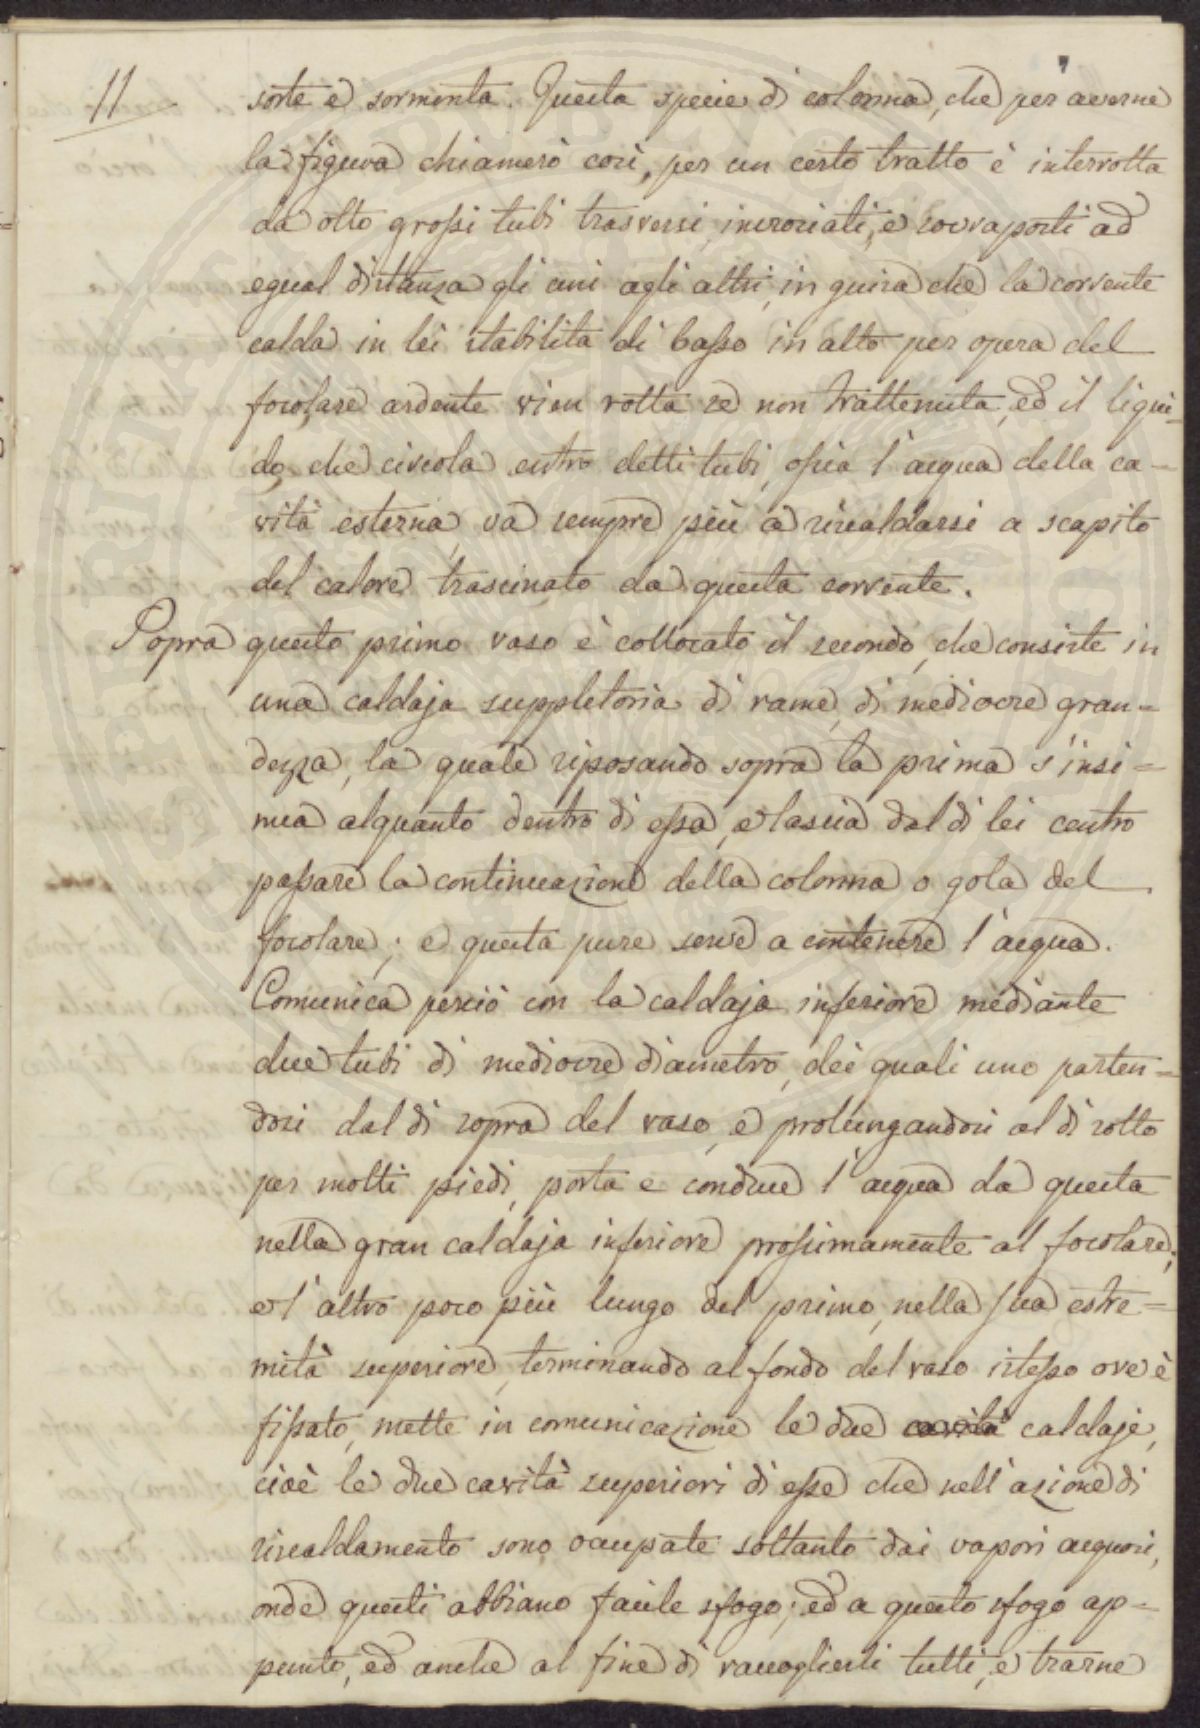 11
sorte e sormonta. Questa specie di colonna, che per averne
la figura chiamerò così, per un certo tratto è interrotta
da otto grossi tubi trasversi, incrociati, e sovraposti ad
egual distanza gli uni agli altri, in guisa che la corrente
calda in lei stabilita di basso in alto per opera del
focolare ardente vien rotta se non trattenuta, ed il liqui-
do, che circola entro detti tubi, ossia l'acqua della ca-
vità esterna, va sempre più a riscaldarsi a scapito
del calore trascinato da questa corrente.
Sopra questo primo vaso è collocato il secondo, che consiste in
una caldaja suppletoria di rame, di mediocre gran-
dezza, la quale riposando sopra la prima s'insi-
nua alquanto dentro di essa, e lascia dal di lei centro
passare la continuazione della colonna o gola del
focolare; e questa pure serve a contenere l'acqua.
Comunica perciò con la caldaja inferiore mediante
due tubi di mediocre diametro, dei quali uno parten-
dosi dal di sopra del vaso, e prolungandosi al di sotto
per molti piedi, porta e conduce l'acqua da questa
nella gran caldaja inferiore prossimamente al focolare;
e l'altro poco più lungo del primo, nella sua estre-
mità superiore, terminando al fondo del vaso istesso ove è
fissato, mette in comunicazione le due cavità caldaje,
cioè le due cavità superiori di esse che nell'azione di
riscaldamento sono occupate soltanto dai vapori acquosi,
onde questi abbiano facile sfogo; ed a questo sfogo ap-
punto, ed anche al fine di raccoglierli tutti, e trarne